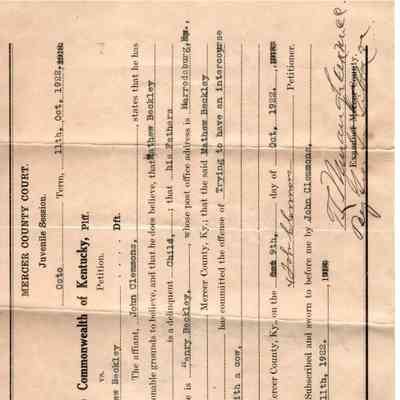 MERCER COUNTY COURT.
Juvenile Session.
Octo Term, 11th, Oct, 1922,
Commonwealth of Kentucky, Plf.
vs. Petition.
Beckley Dft.
The affiant, John Clemmons, states that he has
onable grounds to believe, and that he does believe, that Mathew Beckley
is a delinquent Child, ; that his Fathers
e is Henry Beckley, whose post office address is Harrodsburg, Ky.,
Mercer County, Ky.; that the said Mathew Beckley
has committed the offense of Trying to have an intercourse
th a cow,
ercer County, Ky., on the 9th, day of Oct, 1922.
Petitioner.
Subscribed and sworn to before me by John Clemmons,
11th, 1922.
Mercer County.